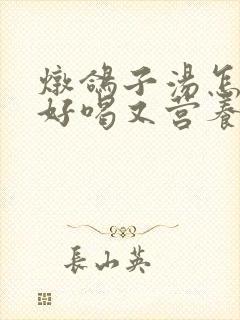 燉鴿子湯怎
好喝又营養
長山英